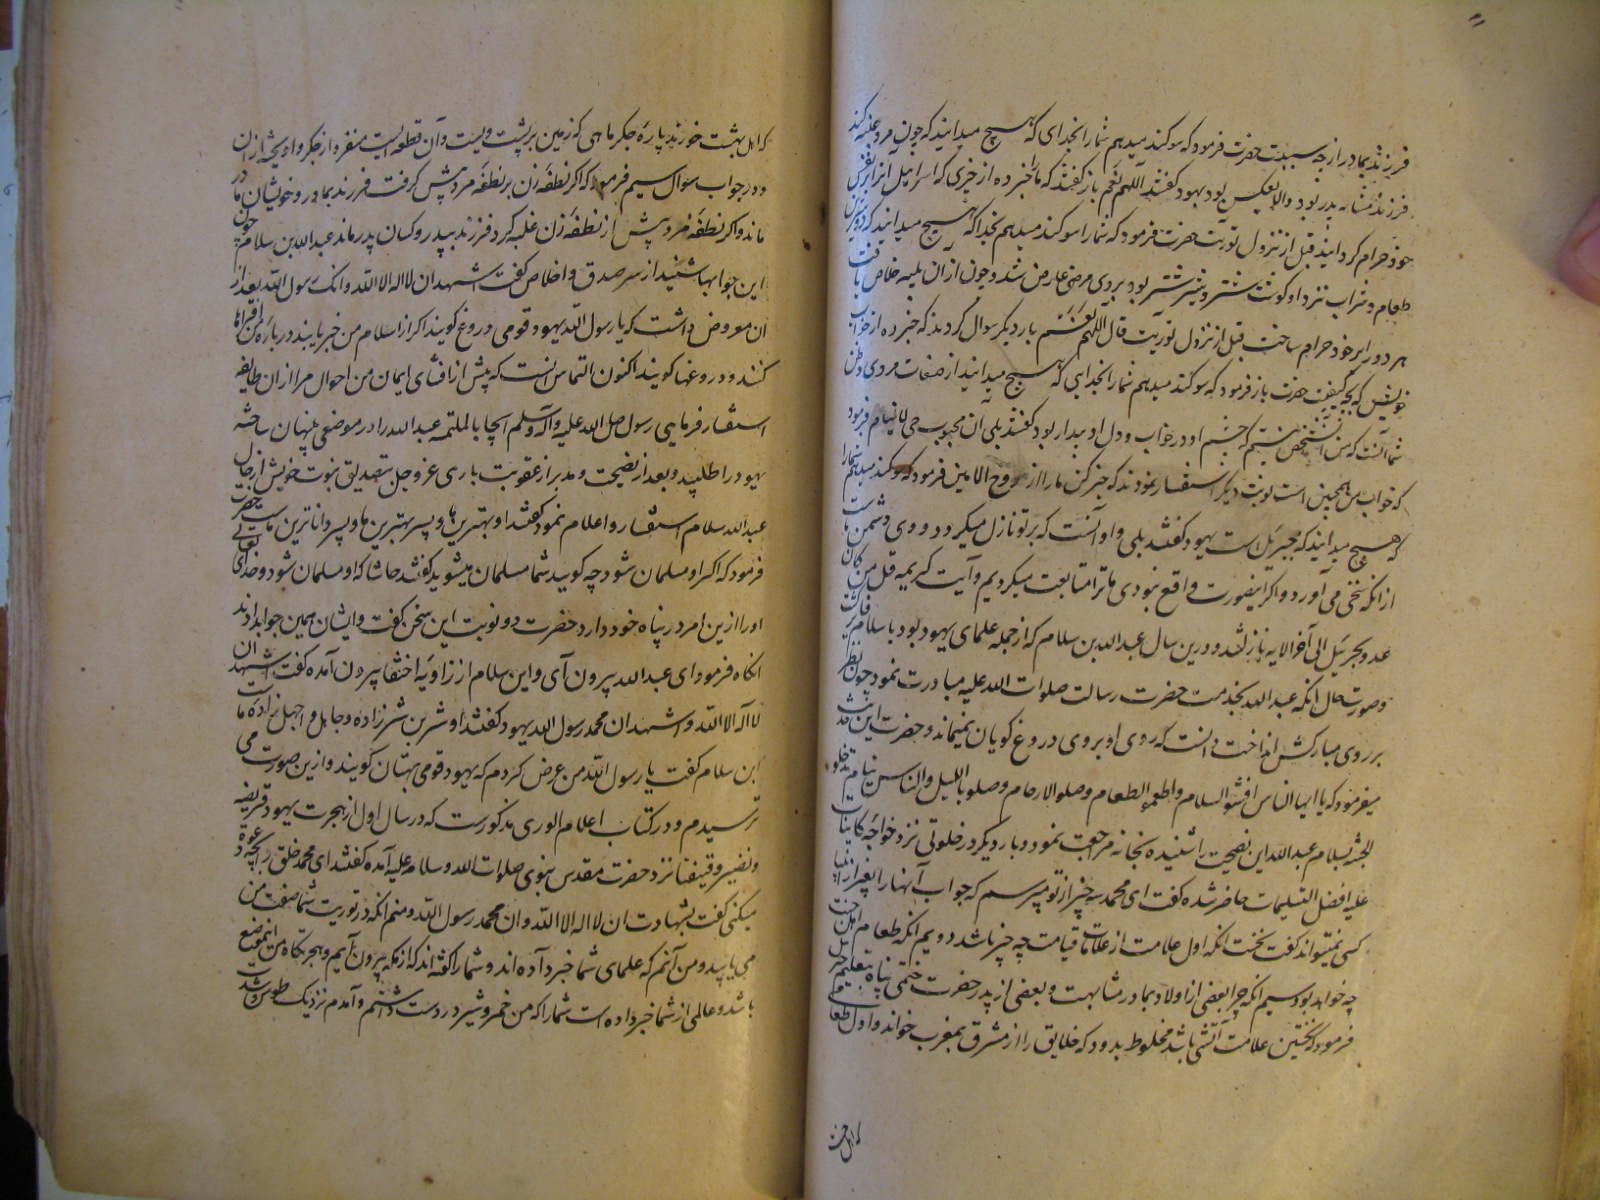 فرزند بمادر از چه سببست حضرت فرمود که سوکند میدهم شما را بخدای که هیچ میدانید که چون مرد غلبه کند
فرزند مشابه پدر بود والا بعکس بود یهود کفتند اللهم نعم باز کفتند که ما را خبر ده از چیزی که اسرائیل آنرا بر نفس
خود حرام کردانید قبل از نزول توریت حضرت فرمود که شما را سوکند میدهم بخدا که هیچ میدانید که
طعام و شراب نزد او کوشت شتر و شیر شتر بود بر وی مرضی عارض شد و چون از ان بلیه خلاص یافت
هر دو را بر خود حرام ساخت قبل از نزول توریت قال اللهم نعم بار دیکر سوال کردند که خبر ده از خواب
خویش که بچه کیفیت حضرت باز فرمود که سوکند میدهم شما را بخدایی که هیچ میدانید از صفات مردی و ظن
شما آنست که من آن شخص نیستم که چشم او در خواب و دل او بیدار بود کفتند بلی ان محبوب حی لا ینام فرمود
که خواب من همچنین است نوبت دیکر استفسار نمودند که خبر کن ما را از روح الامین فرمود که سوکند میدهم شما را
که هیچ میدانید که جبرئیل است یهود کفتند بلی و او آنست که بر تو نازل میکردد و وی دشمن ماست
از انکه سختی می آورد و اکر اینصورت واقع نبودی ما ترا متابعت میکردیم و آیت کریمه قل من کان
عدو لجبرئیل الی آخر الایه نازل شد و درین سال عبد الله بن سلام که از جمله علمای یهود بود باسلام
وصورت حال انکه عبد الله بخدمت حضرت رسالت صلوات الله علیه مبادرت نمود چون نظر
بر روی مبارکش انداخت دانست که روی او بروی دروغ کویان نمیماند و حضرت این
میفرمود که یا ایها الناس افشوا السلام و اطعموا الطعام و صلوا الارحام و صلوا باللیل والناس نیام تدخلوا
الجنه بسلام عبد الله این نصیحت را شنیده بخانه مراجعت نمود و بار دیکر در خلوتی نزد خواجه کاینات
علیه افضل التسلیمات حاضر شده کفت ای محمد سه چیز از تو میپرسم که جواب آنها را بغیر از انبیا
کسی نمیتواند کفت نخست انکه اول علامت از علامات قیامت چه چیز باشد دویم انکه طعام اهل جنت
چه خواهد بود سیم انکه چرا بعضی از اولاد بمادر مشابهت و بعضی از پدر حضرت ختمی پناه بتعلیم جبرئیل
فرمود که نخستین علامت آتشی باشد مخلوط بدود که خلایق را از مشرق بمغرب خواند و اول طعامی
که اهل جنت
که اهل بهشت خورند پارهٔ جکر ماهی که زمین بر پشت ویست و آن قطعه ایست منفرد از جکر و او نیکتر از ان
و در جواب سوال سیم فرمود که اکر نطفهٔ زن بر نطفهٔ مرد پیش کرفت فرزند بمادر و خویشان مادر
ماند و اکر نطفهٔ مرد پیش از نطفهٔ زن غلبه کرد فرزند بپدر و کسان پدر ماند عبد الله بن سلام چون
این جوابها شنید از سر صدق و اخلاص کفت اشهد ان لا اله الا الله وانک رسول الله بعد از
ان معروض داشت که یا رسول الله یهود قومی دروغ کویند اکر از اسلام من خبر یابند در باره من افتراها
کنند و دروغها کویند اکنون التماس انست که پیش از افشای ایمان من احوال مرا از ان طایفه
استفسار فرمایی رسول صلی الله علیه و آله و سلم ایجابا لملتمسه عبد الله را در موضعی پنهان ساخته
یهود را طلبید و بعد از نصیحت و تحذیر از عقوبت باری عز و جل بتصدیق نبوت خویش از حال
عبد الله سلام استفسار و اعلام نمود کفتند او بهترین ما و پسر بهترین ما و پسر داناترین ماست حضرت
فرمود که اکر او مسلمان شود چه کویید شما مسلمان میشوید کفتند حاشا که او مسلمان شود و خدای تعالی
او را ازین امر در پناه خود دارد حضرت دو نوبت این سخن کفت و ایشان همین جواب دادند
انکاه فرمود ای عبد الله بیرون آی و ابن سلام از زاویهٔ اختفا بیرون آمده کفت اشهد ان
لا اله الا الله و اشهد ان محمد رسول الله یهود کفتند او شر بن شر زاده و جاهل و اجهل زاده ماست
ابن سلام کفت یا رسول الله من عرض کردم که یهود قومی بهتان کویند و ازین صورت می
ترسیدم و در کتاب اعلام الوری مذکورست که در سال اول از هجرت یهود قریضه
و نضیر و قینقاع نزد حضرت مقدس نبوی صلوات الله و سلامه علیه آمده کفتند ای محمد خلق را بچه دعوة
میکنی کفت بشهادت ان لا اله الا الله و ان محمد رسول الله و منم آنکه در توریت شما صفت من
می یابید و من آنم که علمای شما خبر داده اند و شما را کفته اند که از مکه بیرون آیم و هجرتکاه من این موضع
باشد و عالمی از شما خبر داده است شما را که من خمر و شیر در دست داشتم و آمدم نزدیک